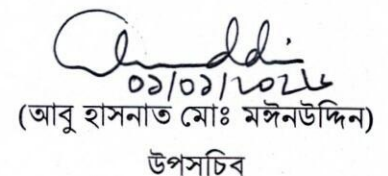 ০১/০১/২০২৬
(আবু হাসনাত মোঃ মঈনউদ্দিন)
উপসচিব